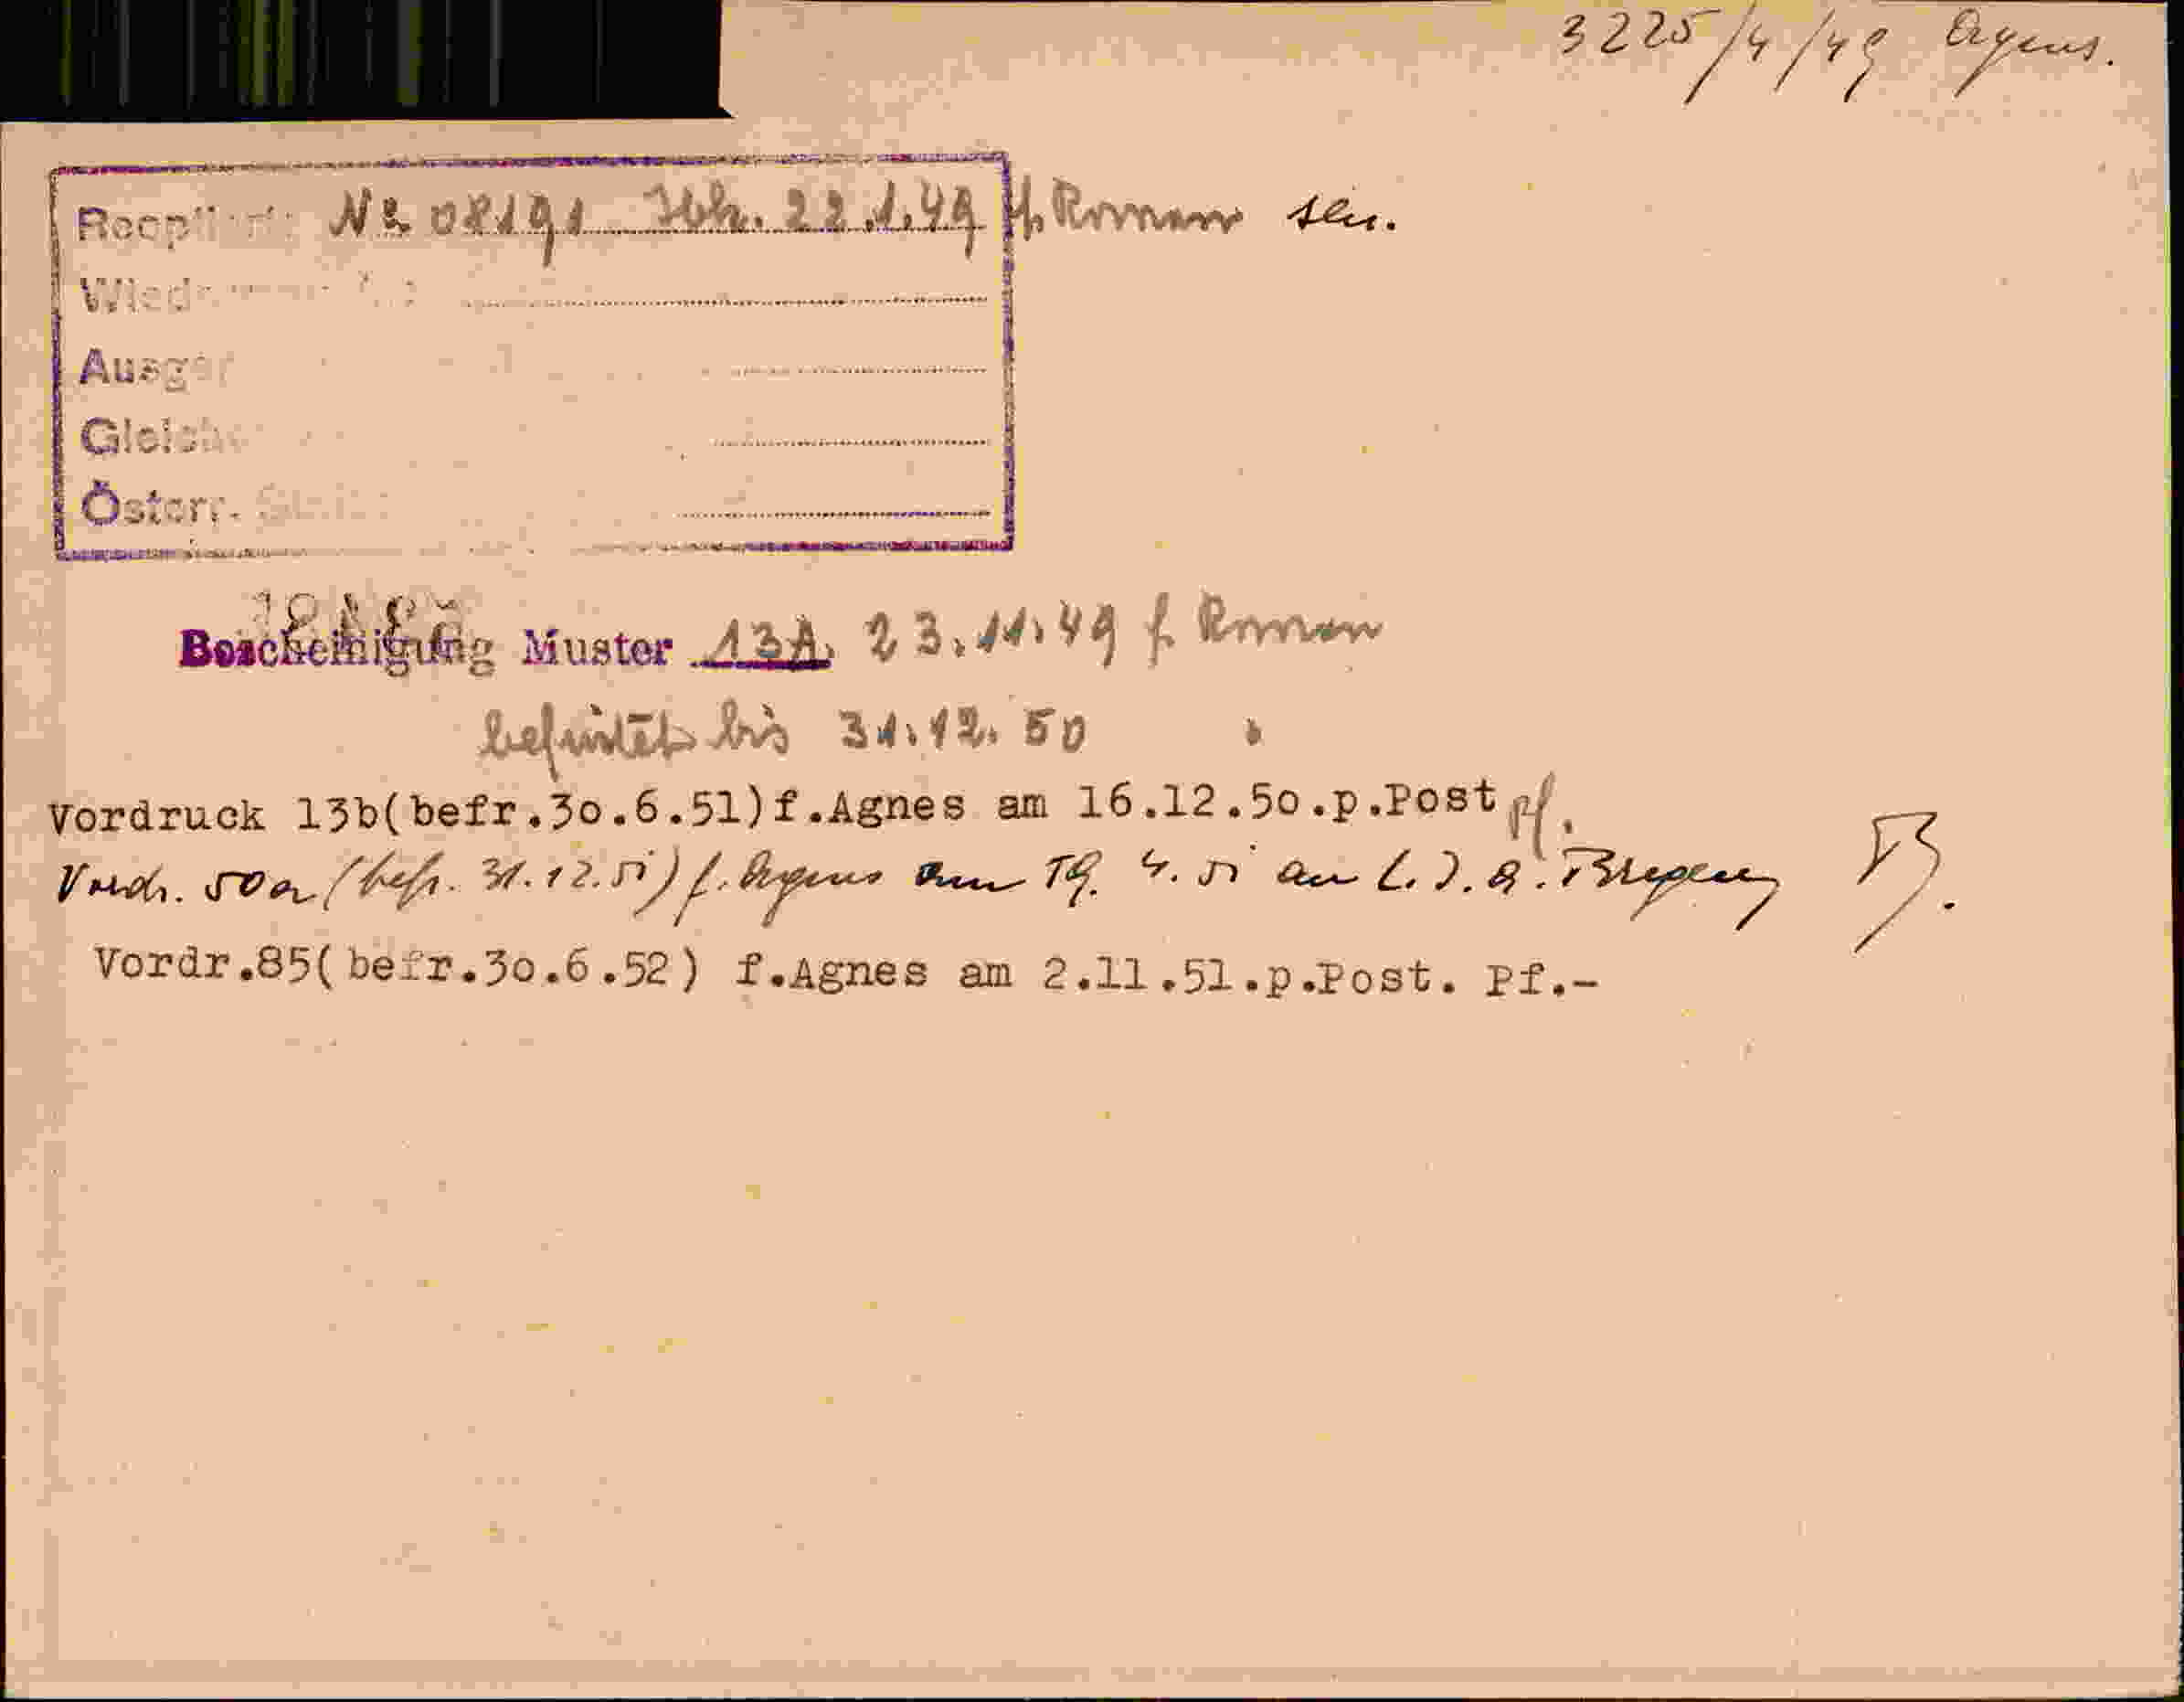 3225/4/49 Agnes.
No 08191 Ibk. 22.1.49 f. Roman sen.
Österr.
Bescheinigung Muster 13A. 23.11.49 f. Roman
befristet bis 31.12.50
Vordruck 13b(befr.30.6.51)f.Agnes am 16.12.50.p.Post Pf.
Vordr. 50a (befr. 31.12.51) f. Agnes am 19. 4. 51 an L. J. A. Bregenz B.
Vordr.85(befr.30.6.52) f.Agnes am 2.11.51.p.Post. Pf.-